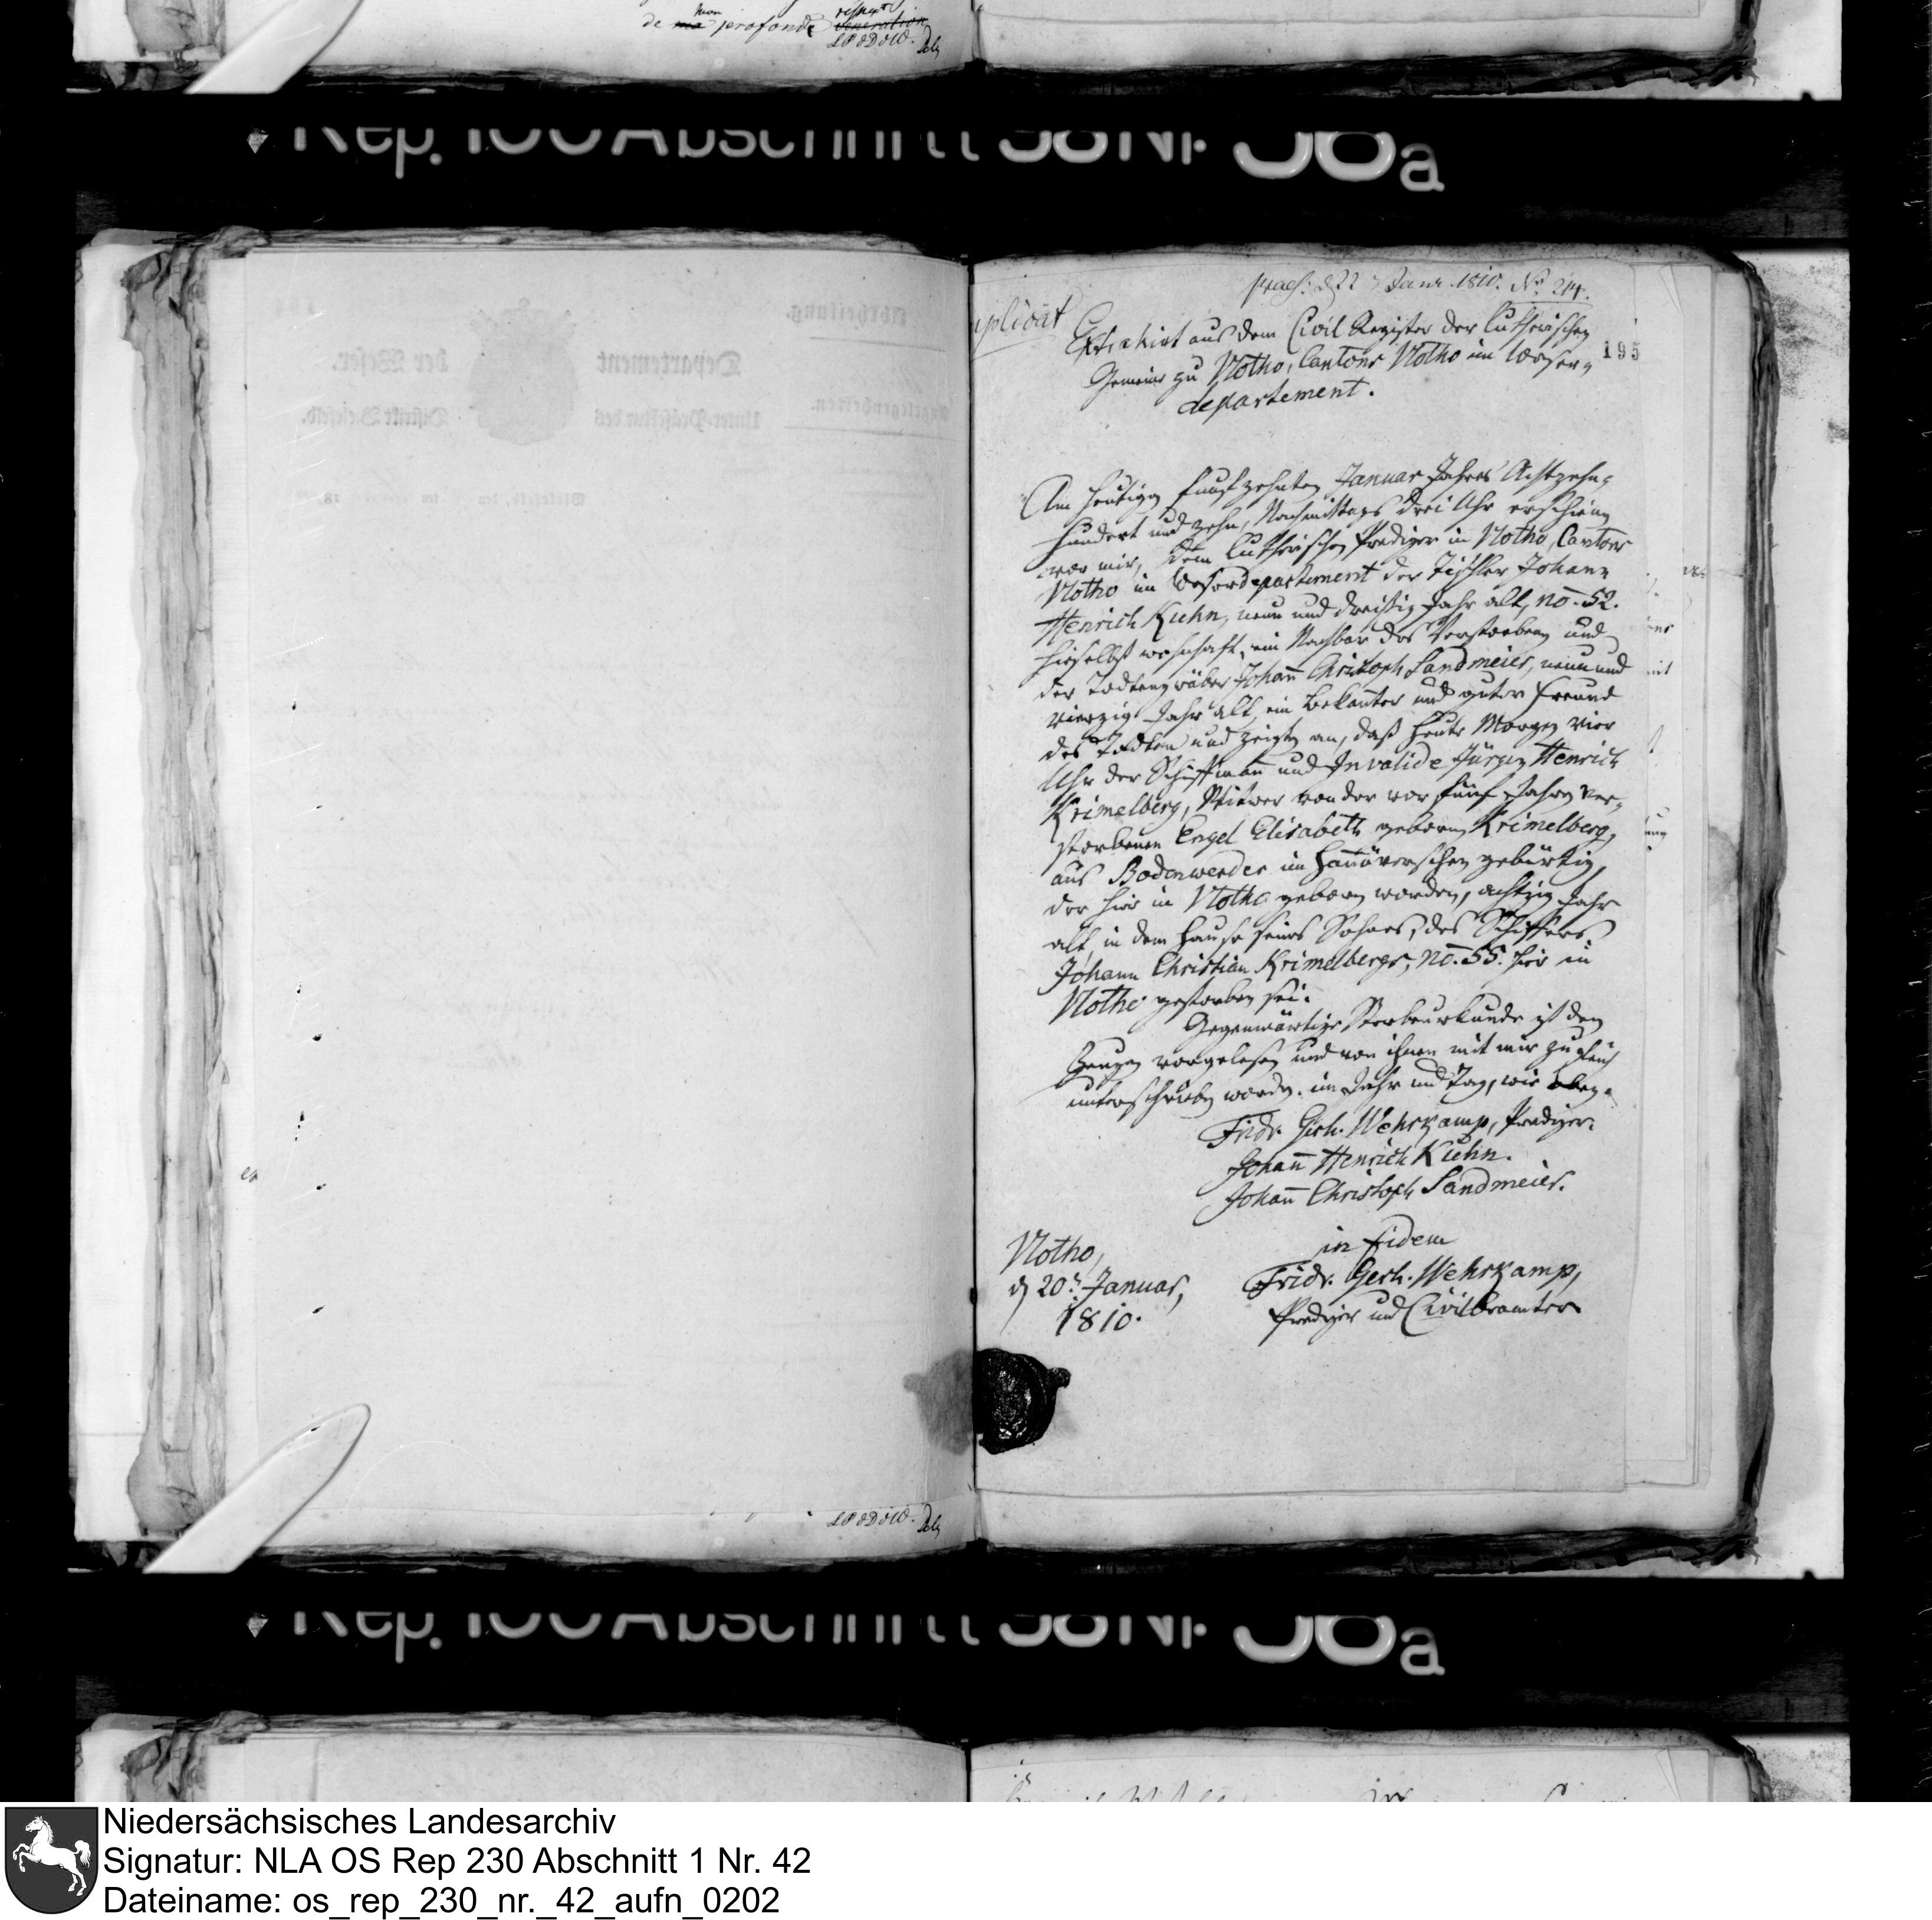 de mon profond respect
Rep. 100 Abschnitt 58 Nr 58a
praes: d 22 Janr. 1810. No 214.
uplicat
Extrahirt aus dem Civil Register der Lutherischen
Gemeine zu Vlotho, Cantons Vlotho im Weser-
departement.
195
Am heutigen funfzehnten Januar Jahres Achtzehn-
hundert und zehn, Nachmittags drei Uhr erschienen
vor mir, dem Lutherischen Prediger in Vlotho, Cantons
Vlotho im Weserdepartement der Tischler Johann
Henrich Kuhn, neun und dreißig Jahr alt, no. 52.
hieselbst wohnhaft, ein Nachbar des Verstorbenen und
der Todtengräber Johann Christoph Sandmeier, neun und
vierzig Jahr alt, ein Bekannter und guter Freund
des Todten und zeigten an, daß heute Morgen vier
Uhr der Schiffmann und Invalide Jürgen Henrich
Krimelberg, Wittwer von der vor fünf Jahren ver-
storbenen Engel Elisabeth geborne Krimelberg,
aus Bodenwerder im Hannöverschen gebürtig,
der hier in Vlotho geboren worden, achtzig Jahr
alt, in dem Hause seines Sohnes, des Schiffers
Johann Christian Krimelbergs, no. 55. hier in
Vlotho gestorben sei.
Gegenwärtige Sterbeurkunde ist den
Zeugen vorgelesen und von ihnen mit mir zugleich
unterschrieben worden. im Jahr und Tag, wie oben.
Fridr. Gerh. Wehrkamp, Prediger.
Johann Henrich Kuhn.
Johann Christoph Sandmeier.
Vlotho,
d 20t Januar,
1810.
in fidem
Fridr. Gerh. Wehrkamp,
Prediger und Civilbeamter
Rep. 100 Abschnitt 58 Nr 58a
Niedersächsisches Landesarchiv
Signatur: NLA OS Rep 230 Abschnitt 1 Nr. 42
Dateiname: os_rep_230_nr._42_aufn_0202